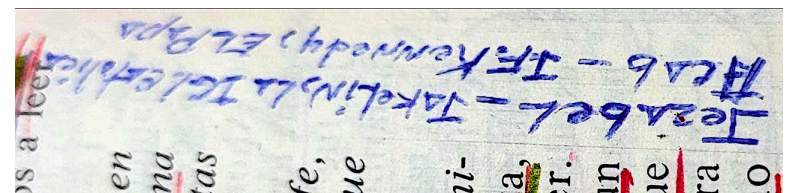 Jezabel - Jakelin, La IGLCatolica
Acab - J.F. Kennedy, EL Papa
os a leer
en
na
tas
fe,
ue
ni-
a,
er.
un
ue
ra
o